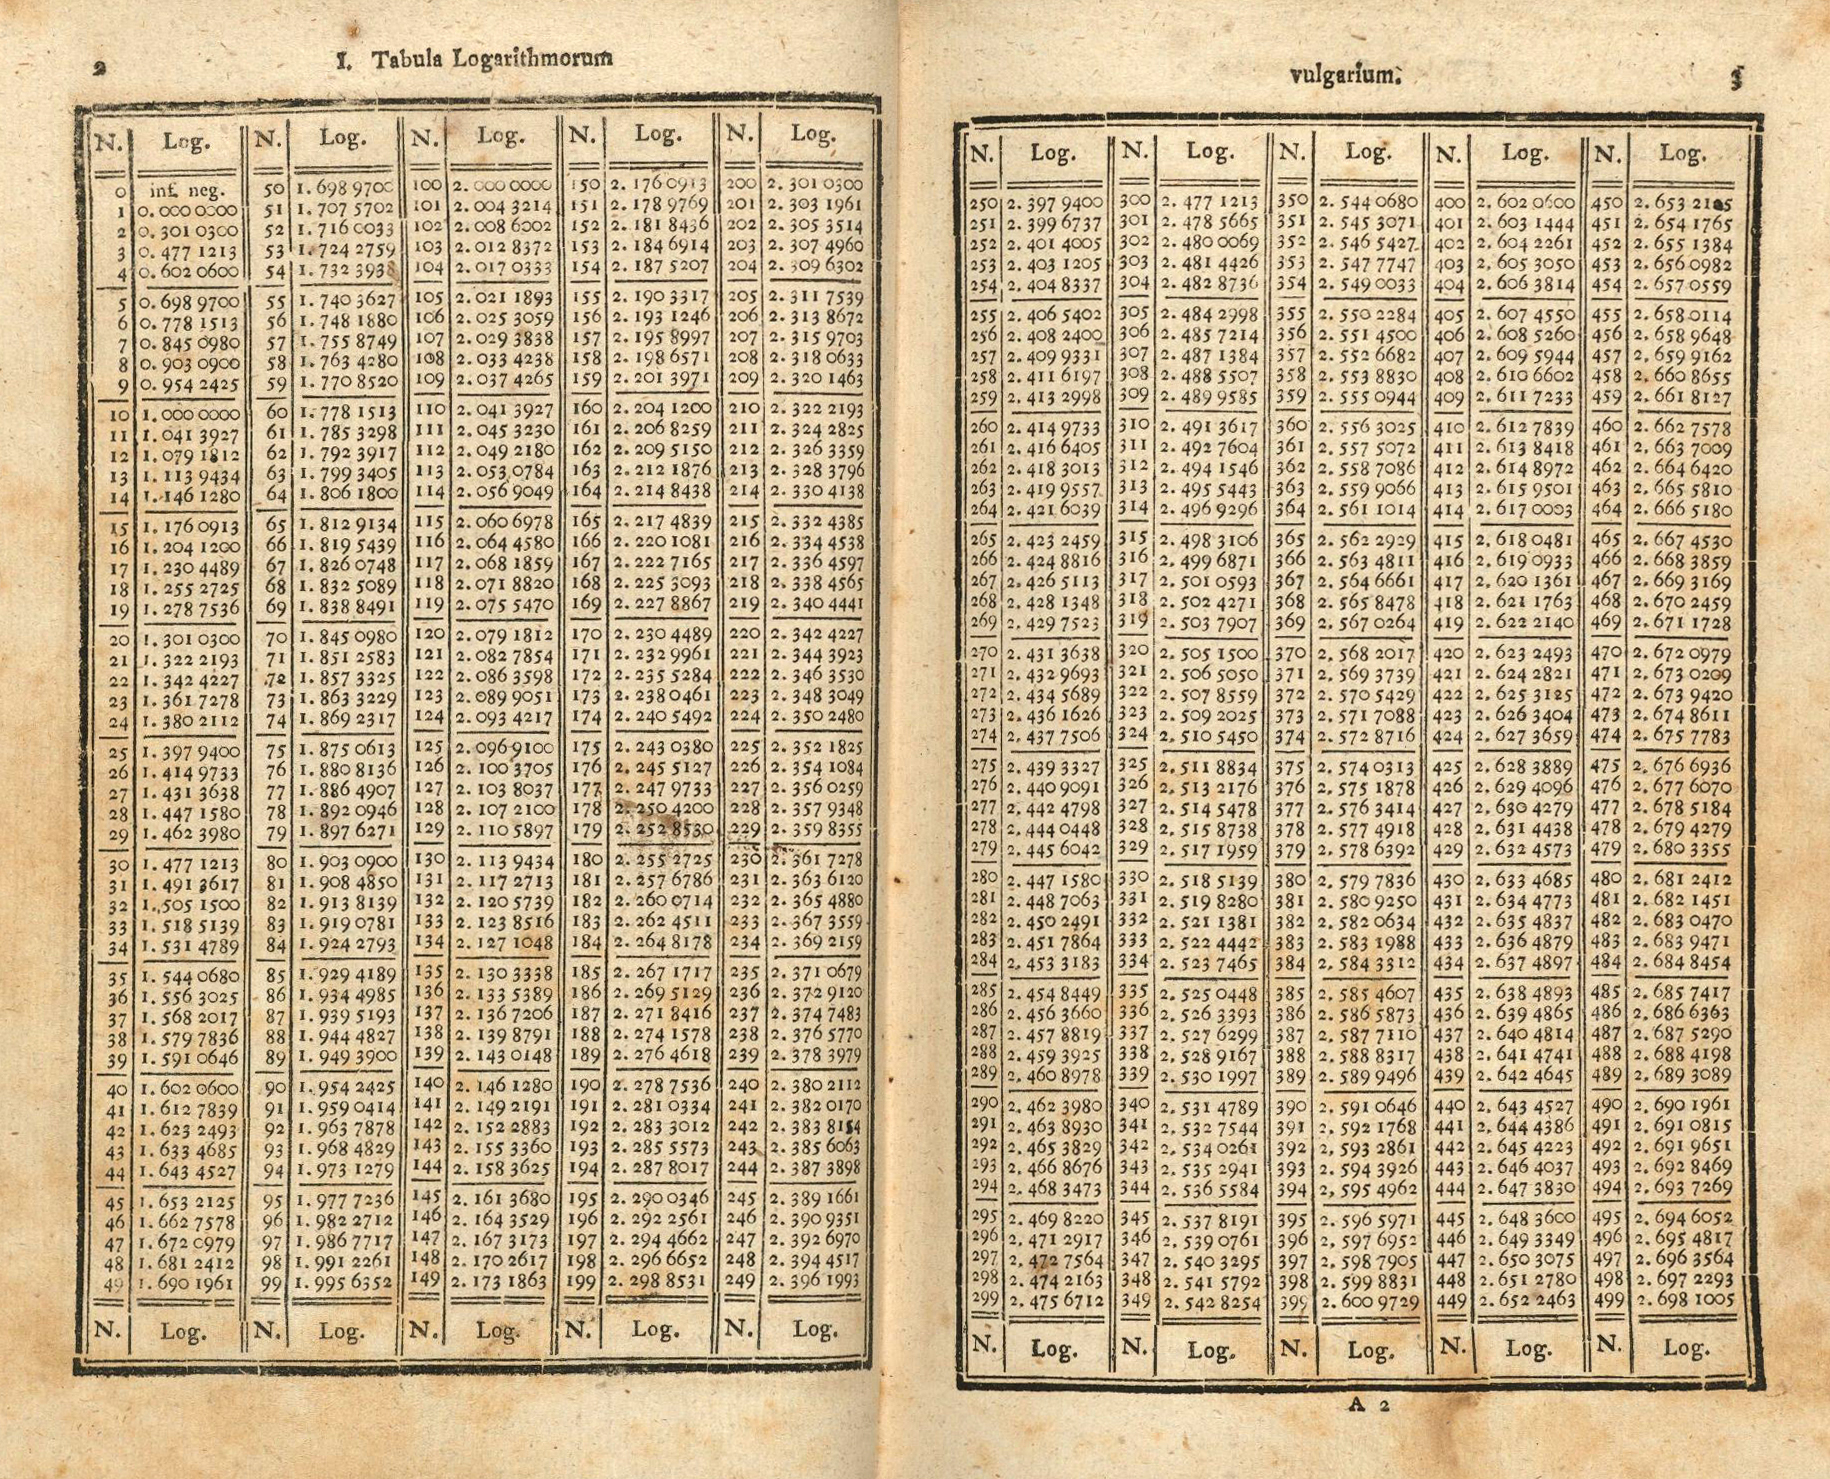 2 I. Tabula Logarithmorum
N. Log. N. Log. N. Log. N. Log. N. Log.
0 inf. neg. 50 1.698 9700 100 2.000 0000 150 2.176 0913 200 2.301 0300
1 0.000 0000 51 1.707 5702 101 2.004 3214 151 2.178 9769 201 2.303 1961
2 0.301 0300 52 1.716 0033 102 2.008 6002 152 2.181 8436 202 2.305 3514
3 0.477 1213 53 1.724 2759 103 2.012 8372 153 2.184 6914 203 2.307 4960
4 0.602 0600 54 1.732 3938 104 2.017 0333 154 2.187 5207 204 2.309 6302
5 0.698 9700 55 1.740 3627 105 2.021 1893 155 2.190 3317 205 2.311 7539
6 0.778 1513 56 1.748 1880 106 2.025 3059 156 2.193 1246 206 2.313 8672
7 0.845 0980 57 1.755 8749 107 2.029 3838 157 2.195 8997 207 2.315 9703
8 0.903 0900 58 1.763 4280 108 2.033 4238 158 2.198 6571 208 2.318 0633
9 0.954 2425 59 1.770 8520 109 2.037 4265 159 2.201 3971 209 2.320 1463
10 1.000 0000 60 1.778 1513 110 2.041 3927 160 2.204 1200 210 2.322 2193
11 1.041 3927 61 1.785 3298 111 2.045 3230 161 2.206 8259 211 2.324 2825
12 1.079 1812 62 1.792 3917 112 2.049 2180 162 2.209 5150 212 2.326 3359
13 1.113 9434 63 1.799 3405 113 2.053 0784 163 2.212 1876 213 2.328 3796
14 1.146 1280 64 1.806 1800 114 2.056 9049 164 2.214 8438 214 2.330 4138
15 1.176 0913 65 1.812 9134 115 2.060 6978 165 2.217 4839 215 2.332 4385
16 1.204 1200 66 1.819 5439 116 2.064 4580 166 2.220 1081 216 2.334 4538
17 1.230 4489 67 1.826 0748 117 2.068 1859 167 2.222 7165 217 2.336 4597
18 1.255 2725 68 1.832 5089 118 2.071 8820 168 2.225 3093 218 2.338 4565
19 1.278 7536 69 1.838 8491 119 2.075 5470 169 2.227 8867 219 2.340 4441
20 1.301 0300 70 1.845 0980 120 2.079 1812 170 2.230 4489 220 2.342 4227
21 1.322 2193 71 1.851 2583 121 2.082 7854 171 2.232 9961 221 2.344 3923
22 1.342 4227 72 1.857 3325 122 2.086 3598 172 2.235 5284 222 2.346 3530
23 1.361 7278 73 1.863 3229 123 2.089 9051 173 2.238 0461 223 2.348 3049
24 1.380 2112 74 1.869 2317 124 2.093 4217 174 2.240 5492 224 2.350 2480
25 1.397 9400 75 1.875 0613 125 2.096 9100 175 2.243 0380 225 2.352 1825
26 1.414 9733 76 1.880 8136 126 2.100 3705 176 2.245 5127 226 2.354 1084
27 1.431 3638 77 1.886 4907 127 2.103 8037 177 2.247 9733 227 2.356 0259
28 1.447 1580 78 1.892 0946 128 2.107 2100 178 2.250 4200 228 2.357 9348
29 1.462 3980 79 1.897 6271 129 2.110 5897 179 2.252 8530 229 2.359 8355
30 1.477 1213 80 1.903 0900 130 2.113 9434 180 2.255 2725 230 2.361 7278
31 1.491 3617 81 1.908 4850 131 2.117 2713 181 2.257 6786 231 2.363 6120
32 1.505 1500 82 1.913 8139 132 2.120 5739 182 2.260 0714 232 2.365 4880
33 1.518 5139 83 1.919 0781 133 2.123 8516 183 2.262 4511 233 2.367 3559
34 1.531 4789 84 1.924 2793 134 2.127 1048 184 2.264 8178 234 2.369 2159
35 1.544 0680 85 1.929 4189 135 2.130 3338 185 2.267 1717 235 2.371 0679
36 1.556 3025 86 1.934 4985 136 2.133 5389 186 2.269 5129 236 2.372 9120
37 1.568 2017 87 1.939 5193 137 2.136 7206 187 2.271 8416 237 2.374 7483
38 1.579 7836 88 1.944 4827 138 2.139 8791 188 2.274 1578 238 2.376 5770
39 1.591 0646 89 1.949 3900 139 2.143 0148 189 2.276 4618 239 2.378 3979
40 1.602 0600 90 1.954 2425 140 2.146 1280 190 2.278 7536 240 2.380 2112
41 1.612 7839 91 1.959 0414 141 2.149 2191 191 2.281 0334 241 2.382 0170
42 1.623 2493 92 1.963 7878 142 2.152 2883 192 2.283 3012 242 2.383 8154
43 1.633 4685 93 1.968 4829 143 2.155 3360 193 2.285 5573 243 2.385 6063
44 1.643 4527 94 1.973 1279 144 2.158 3625 194 2.287 8017 244 2.387 3898
45 1.653 2125 95 1.977 7236 145 2.161 3680 195 2.290 0346 245 2.389 1661
46 1.662 7578 96 1.982 2712 146 2.164 3529 196 2.292 2561 246 2.390 9351
47 1.672 0979 97 1.986 7717 147 2.167 3173 197 2.294 4662 247 2.392 6970
48 1.681 2412 98 1.991 2261 148 2.170 2617 198 2.296 6652 248 2.394 4517
49 1.690 1961 99 1.995 6352 149 2.173 1863 199 2.298 8531 249 2.396 1993
N. Log. N. Log. N. Log. N. Log. N. Log.
vulgarium. 3
N. Log. N. Log. N. Log. N. Log. N. Log.
250 2.397 9400 300 2.477 1213 350 2.544 0680 400 2.602 0600 450 2.653 2125
251 2.399 6737 301 2.478 5665 351 2.545 3071 401 2.603 1444 451 2.654 1765
252 2.401 4005 302 2.480 0069 352 2.546 5427 402 2.604 2261 452 2.655 1384
253 2.403 1205 303 2.481 4426 353 2.547 7747 403 2.605 3050 453 2.656 0982
254 2.404 8337 304 2.482 8736 354 2.549 0033 404 2.606 3814 454 2.657 0559
255 2.406 5402 305 2.484 2998 355 2.550 2284 405 2.607 4550 455 2.658 0114
256 2.408 2400 306 2.485 7214 356 2.551 4500 406 2.608 5260 456 2.658 9648
257 2.409 9331 307 2.487 1384 357 2.552 6682 407 2.609 5944 457 2.659 9162
258 2.411 6197 308 2.488 5507 358 2.553 8830 408 2.610 6602 458 2.660 8655
259 2.413 2998 309 2.489 9585 359 2.555 0944 409 2.611 7233 459 2.661 8127
260 2.414 9733 310 2.491 3617 360 2.556 3025 410 2.612 7839 460 2.662 7578
261 2.416 6405 311 2.492 7604 361 2.557 5072 411 2.613 8418 461 2.663 7009
262 2.418 3013 312 2.494 1546 362 2.558 7086 412 2.614 8972 462 2.664 6420
263 2.419 9557 313 2.495 5443 363 2.559 9066 413 2.615 9501 463 2.665 5810
264 2.421 6039 314 2.496 9296 364 2.561 1014 414 2.617 0003 464 2.666 5180
265 2.423 2459 315 2.498 3106 365 2.562 2929 415 2.618 0481 465 2.667 4530
266 2.424 8816 316 2.499 6871 366 2.563 4811 416 2.619 0933 466 2.668 3859
267 2.426 5113 317 2.501 0593 367 2.564 6661 417 2.620 1361 467 2.669 3169
268 2.428 1348 318 2.502 4271 368 2.565 8478 418 2.621 1763 468 2.670 2459
269 2.429 7523 319 2.503 7907 369 2.567 0264 419 2.622 2140 469 2.671 1728
270 2.431 3638 320 2.505 1500 370 2.568 2017 420 2.623 2493 470 2.672 0979
271 2.432 9693 321 2.506 5050 371 2.569 3739 421 2.624 2821 471 2.673 0209
272 2.434 5689 322 2.507 8559 372 2.570 5429 422 2.625 3125 472 2.673 9420
273 2.436 1626 323 2.509 2025 373 2.571 7088 423 2.626 3404 473 2.674 8611
274 2.437 7506 324 2.510 5450 374 2.572 8716 424 2.627 3659 474 2.675 7783
275 2.439 3327 325 2.511 8834 375 2.574 0313 425 2.628 3889 475 2.676 6936
276 2.440 9091 326 2.513 2176 376 2.575 1878 426 2.629 4096 476 2.677 6070
277 2.442 4798 327 2.514 5478 377 2.576 3414 427 2.630 4279 477 2.678 5184
278 2.444 0448 328 2.515 8738 378 2.577 4918 428 2.631 4438 478 2.679 4279
279 2.445 6042 329 2.517 1959 379 2.578 6392 429 2.632 4573 479 2.680 3355
280 2.447 1580 330 2.518 5139 380 2.579 7836 430 2.633 4685 480 2.681 2412
281 2.448 7063 331 2.519 8280 381 2.580 9250 431 2.634 4773 481 2.682 1451
282 2.450 2491 332 2.521 1381 382 2.582 0634 432 2.635 4837 482 2.683 0470
283 2.451 7864 333 2.522 4442 383 2.583 1988 433 2.636 4879 483 2.683 9471
284 2.453 3183 334 2.523 7465 384 2.584 3312 434 2.637 4897 484 2.684 8454
285 2.454 8449 335 2.525 0448 385 2.585 4607 435 2.638 4893 485 2.685 7417
286 2.456 3660 336 2.526 3393 386 2.586 5873 436 2.639 4865 486 2.686 6363
287 2.457 8819 337 2.527 6299 387 2.587 7110 437 2.640 4814 487 2.687 5290
288 2.459 3925 338 2.528 9167 388 2.588 8317 438 2.641 4741 488 2.688 4198
289 2.460 8978 339 2.530 1997 389 2.589 9496 439 2.642 4645 489 2.689 3089
290 2.462 3980 340 2.531 4789 390 2.591 0646 440 2.643 4527 490 2.690 1961
291 2.463 8930 341 2.532 7544 391 2.592 1768 441 2.644 4386 491 2.691 0815
292 2.465 3829 342 2.534 0261 392 2.593 2861 442 2.645 4223 492 2.691 9651
293 2.466 8676 343 2.535 2941 393 2.594 3926 443 2.646 4037 493 2.692 8469
294 2.468 3473 344 2.536 5584 394 2.595 4962 444 2.647 3830 494 2.693 7269
295 2.469 8220 345 2.537 8191 395 2.596 5971 445 2.648 3600 495 2.694 6052
296 2.471 2917 346 2.539 0761 396 2.597 6952 446 2.649 3349 496 2.695 4817
297 2.472 7564 347 2.540 3295 397 2.598 7905 447 2.650 3075 497 2.696 3564
298 2.474 2163 348 2.541 5792 398 2.599 8831 448 2.651 2780 498 2.697 2293
299 2.475 6712 349 2.542 8254 399 2.600 9729 449 2.652 2463 499 2.698 1005
N. Log. N. Log. N. Log. N. Log. N. Log.
A 2